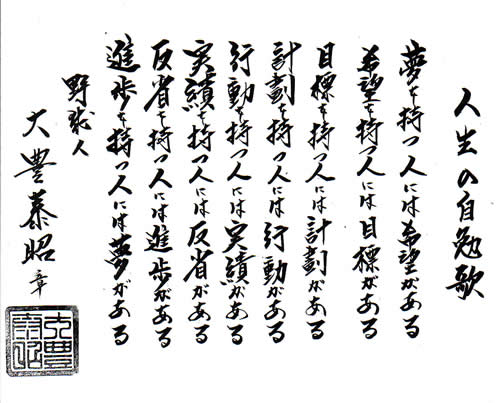 人生の自勉歌
夢を持つ人には希望がある
希望を持つ人には目標がある
目標を持つ人には計劃がある
計劃を持つ人には行動がある
行動を持つ人には実績がある
実績を持つ人には反省がある
反省を持つ人には進歩がある
進歩を持つ人には夢がある
野球人
大豊泰昭 章
大豊泰昭